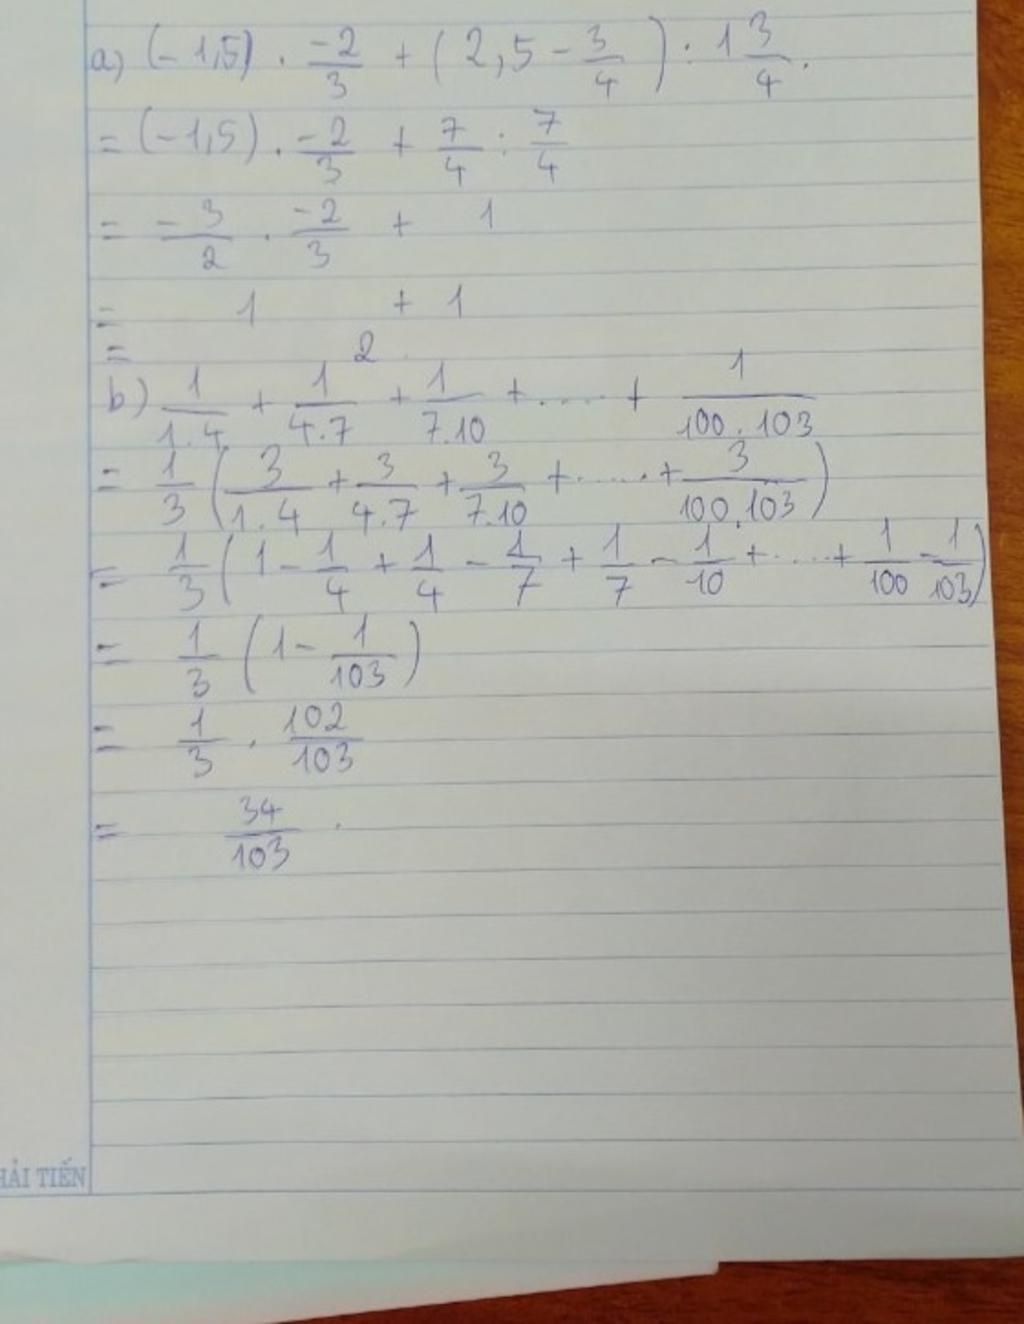 a) (-1,5) . -2/3 + (2,5 - 3/4) : 1 3/4.
= (-1,5) . -2/3 + 7/4 : 7/4
= -3/2 . -2/3 + 1
= 1 + 1
= 2
b) 1/1.4 + 1/4.7 + 1/7.10 + ..... + 1/100.103
= 1/3 (3/1.4 + 3/4.7 + 3/7.10 + ...... + 3/100.103)
= 1/3 (1 - 1/4 + 1/4 - 1/7 + 1/7 - 1/10 + ..... + 1/100 - 1/103)
= 1/3 (1 - 1/103)
= 1/3 . 102/103
= 34/103 .
HẢI TIẾN